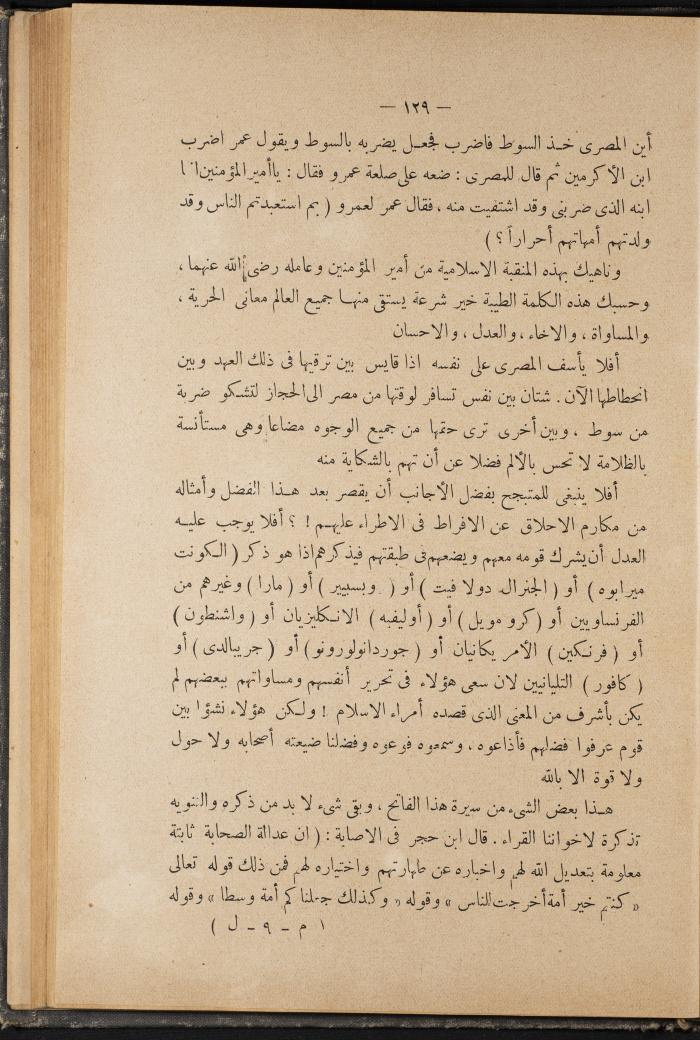 — ١٢٩ —
أين المصرى خـذ السوط فاضرب فجعـل يضربه بالسوط ويقول عمر اضرب
ابن الأكرمين ثم قال للمصرى : ضعه على صلعة عمرو فقال : ياأمير المؤمنين انما
ابنه الذى ضربنى وقد اشتفيت منه ، فقال عمر لعمرو ( بم استعبدتم الناس وقد
ولدتهم أمهاتهم أحراراً ؟ )
وناهيك بهذه المنقبة الاسلامية من أمير المؤمنين وعامله رضى الله عنهما ،
وحسبك هذه الكلمة الطيبة خير شرعة يستقى منهـا جميع العالم معانى الحرية ،
والمساواة ، والاخاء ، والعدل ، والاحسان
أفلا يأسف المصرى على نفسه اذا قايس بين ترقيها فى ذلك العهد وبين
انحطاطها الآن . شتان بين نفس تسافر لوقتها من مصر الى الحجاز لتشكو ضربة
من سوط ، وبين أخرى ترى حقها من جميع الوجوه مضاعا وهى مستأنسة
بالظلامة لا تحس بالألم فضلا عن أن تهم بالشكاية منه
أفلا ينبغى للمتبجح بفضل الأجانب أن يقصر بعد هـذا الفضل وأمثاله
من مكارم الاحلاق عن الافراط فى الاطراء عليهـم ! ؟ أفلا يوجب عليـه
العدل أن يشرك قومه معهم ويضعهم فى طبقتهم فيذكرهم اذا هو ذكر ( الـكونت
ميرابوه ) أو ( الجنرال دولا فيت ) أو ( وبسبيير ) أو ( مارا ) وغيرهم من
الفرنساويين أو ( كرومويل ) أو ( أوليفيه ) الانـكليزيان أو ( واشنطون )
أو ( فرنـكين ) الأمريكانيان أو ( جوردانولورونو ) أو ( جريبالدى ) أو
( كافور ) التليانيين لان سعى هؤلاء فى تحرير أنفسهم ومساواتهم ببعضهم لم
يكن بأشرف من المعنى الذى قصده أمراء الاسلام ! ولـكن هؤلاء نشؤا بين
قوم عرفوا فضلهم فأذاعوه ، وسمعوه فوعوه وفضلنا ضيعته أصحابه ولا حول
ولا قوة الا بالله
هـذا بعض الشىء من سيرة هذا الفاتح ، وبقى شىء لا بد من ذكره والتنويه
تذكرة لاخواننا القراء . قال ابن حجر فى الاصابة : ( ان عدالة الصحابة ثابتة
معلومة بتعديل الله لهم واخباره عن طهارتهم واختياره لهم فمن ذلك قوله تعالى
« كنتم خير أمة أخرجت للناس » وقوله « وكذلك جعلناكم أمة وسطا » وقوله
( م - ٩ - ل )